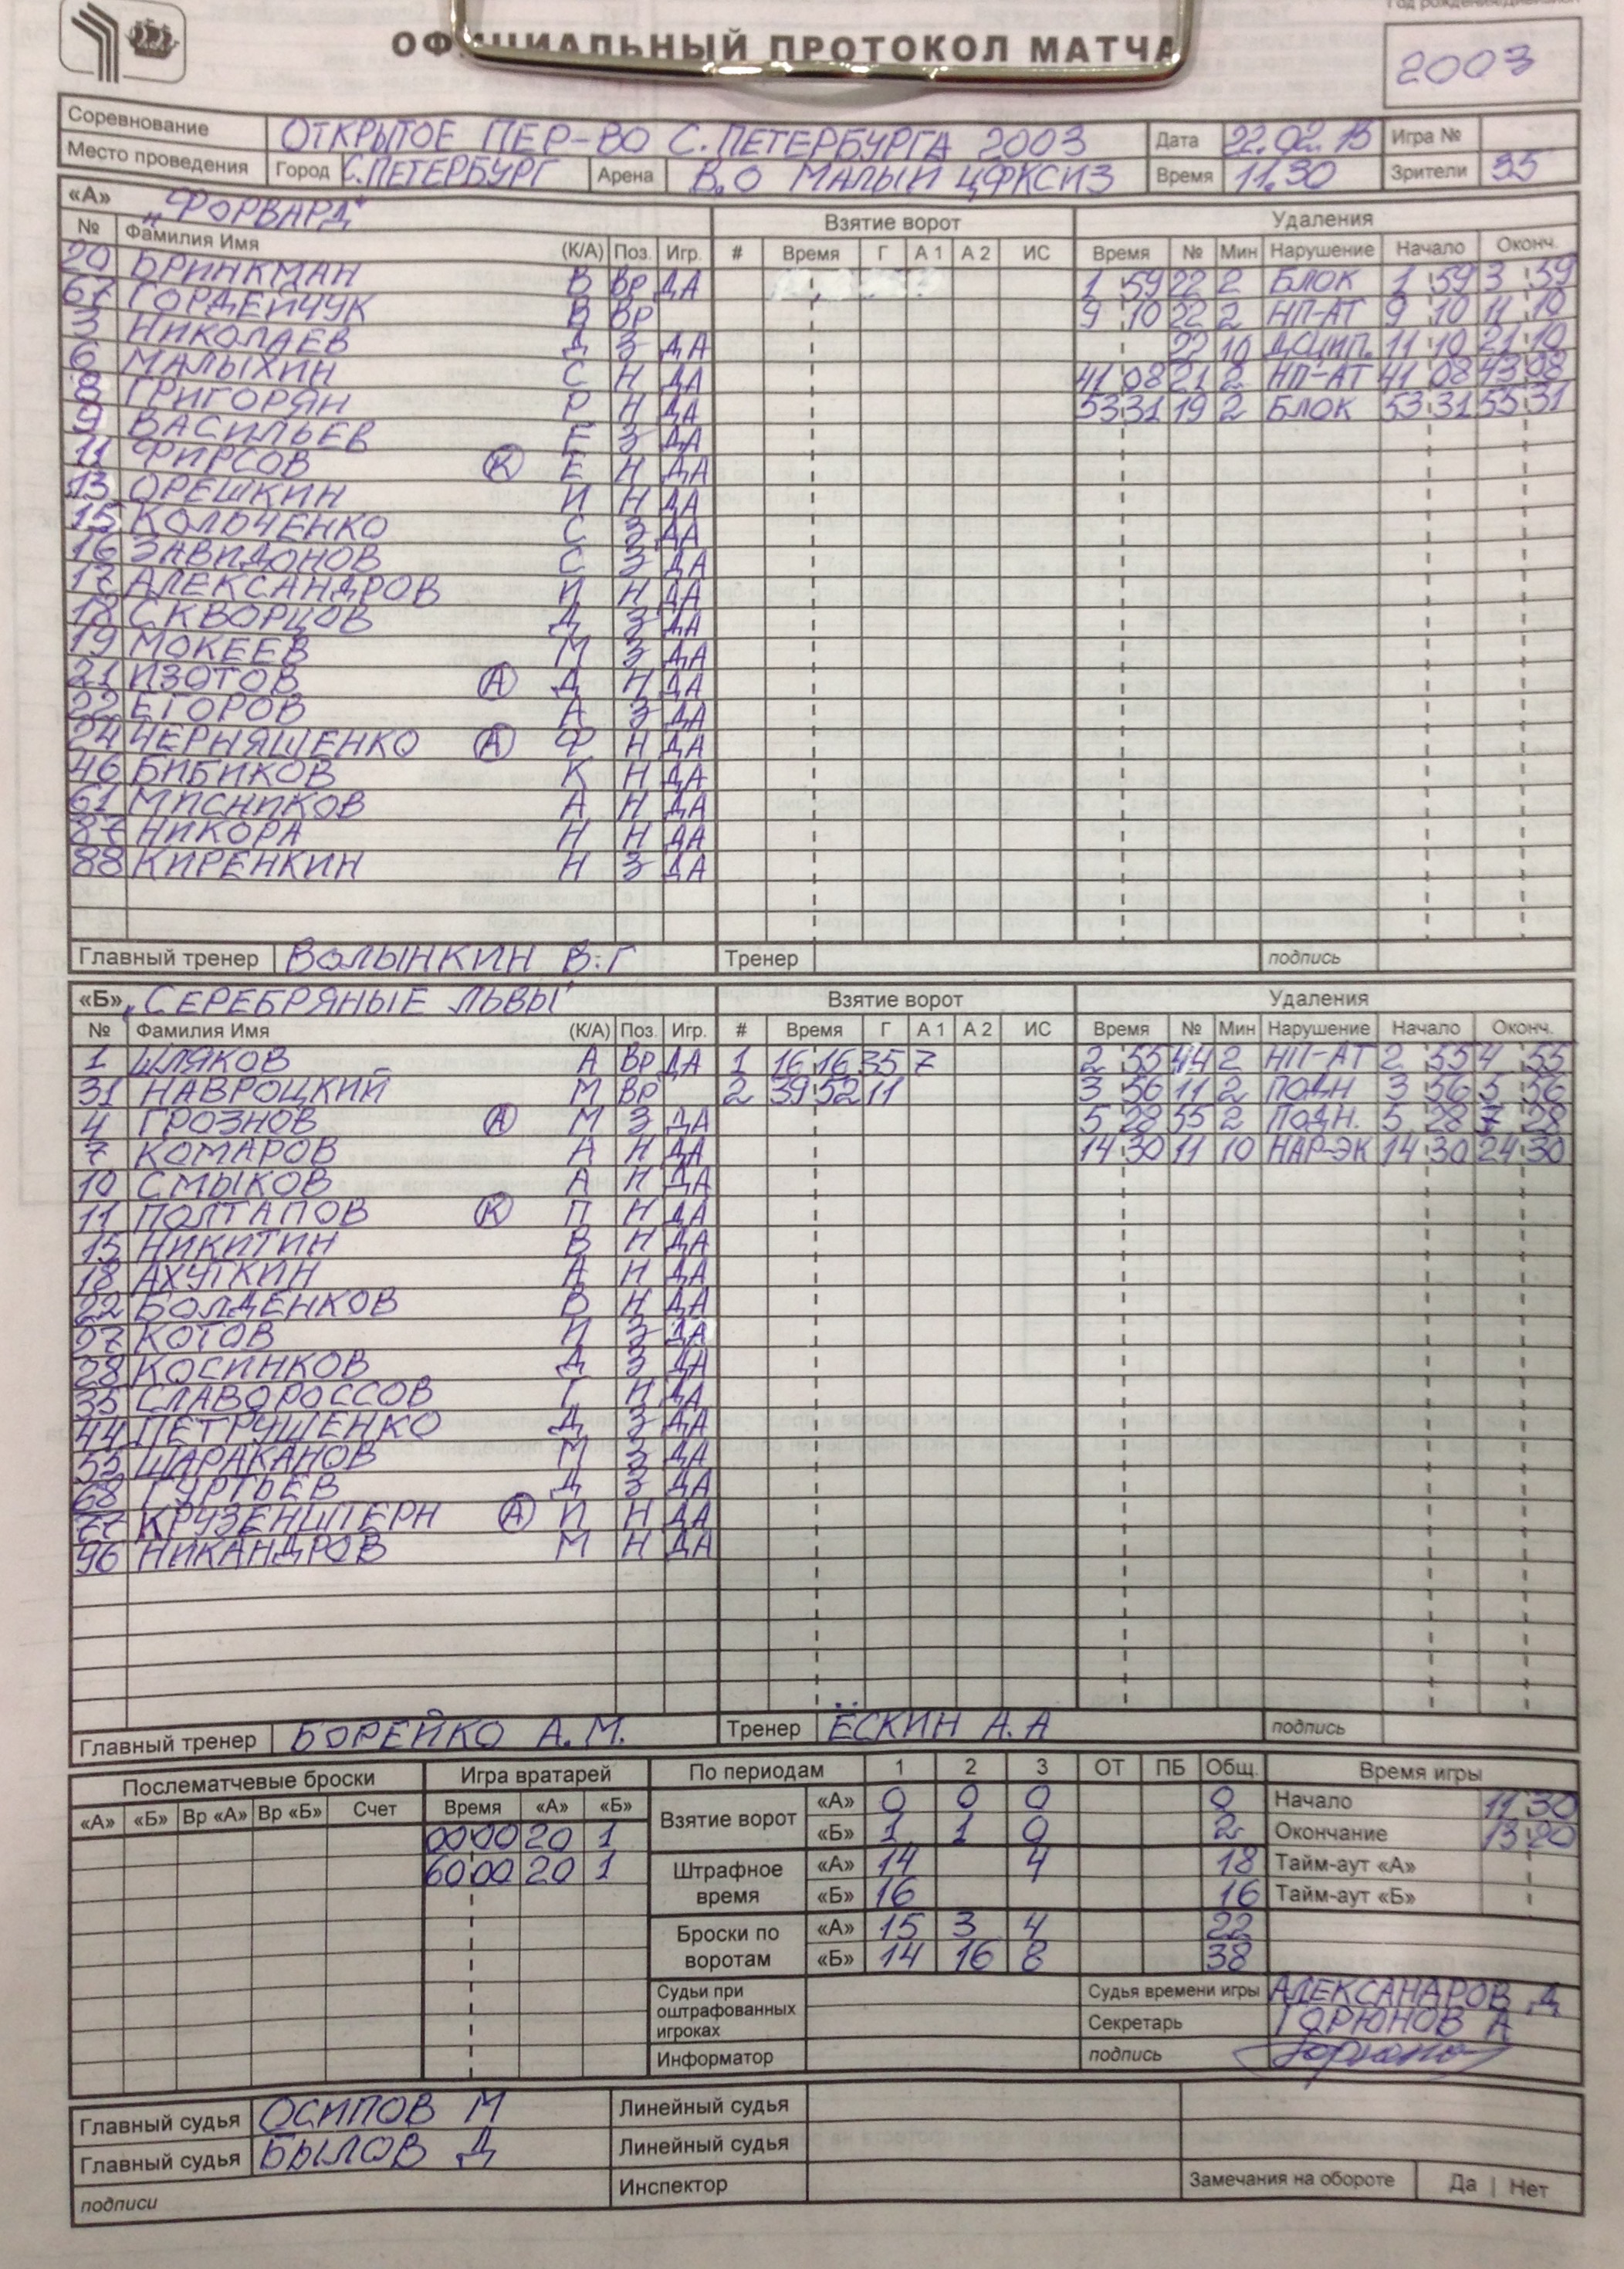 Год рождения/Дивизион
ОФИЦИАЛЬНЫЙ ПРОТОКОЛ МАТЧА
2003
Соревнование ОТКРЫТОЕ ПЕР-ВО С.ПЕТЕРБУРГА 2003 Дата 22.02.15 Игра №
Место проведения Город С.ПЕТЕРБУРГ Арена В.О МАЛЫЙ ЦФКСИЗ Время 11.30 Зрители 35
«А» "ФОРВАРД" Взятие ворот Удаления
№ Фамилия Имя (К/А) Поз. Игр. # Время Г А 1 А 2 ИС Время № Мин Нарушение Начало Оконч.
20 БРИНКМАН В ВР ДА 1 59 22 2 БЛОК 1 59 3 59
67 ГОРДЕЙЧУК В ВР 9 10 22 2 НП-АТ 9 10 11 10
3 НИКОЛАЕВ Д З ДА 22 10 ДСЦИП. 11 10 21 10
6 МАЛЫХИН С Н ДА 41 08 21 2 НП-АТ 41 08 43 08
8 ГРИГОРЯН Р Н ДА 53 31 19 2 БЛОК 53 31 55 31
9 ВАСИЛЬЕВ Е З ДА
11 ФИРСОВ К Е Н ДА
13 ОРЕШКИН И Н ДА
15 КОЛЬЧЕНКО С З ДА
16 ЗАВИДОНОВ С З ДА
17 АЛЕКСАНДРОВ И Н ДА
18 СКВОРЦОВ Д З ДА
19 МОКЕЕВ М З ДА
21 ИЗОТОВ А Д Н ДА
22 ЕГОРОВ А З ДА
24 ЧЕРНЯШЕНКО А Ф Н ДА
46 БИБИКОВ К Н ДА
61 МИСНИКОВ А Н ДА
87 НИКОРА Н Н ДА
88 КИРЕНКИН Н З ДА
Главный тренер ВОЛЫНКИН В.Г Тренер подпись
«Б» "СЕРЕБРЯНЫЕ ЛЬВЫ" Взятие ворот Удаления
№ Фамилия Имя (К/А) Поз. Игр. # Время Г А 1 А 2 ИС Время № Мин Нарушение Начало Оконч.
1 ШЛЯКОВ А ВР ДА 1 16 16 35 7 2 55 44 2 НП-АТ 2 55 4 55
31 НАВРОЦКИЙ М ВР 2 39 52 11 3 56 11 2 ПОДН 3 56 5 56
4 ГРОЗНОВ А М З ДА 5 28 55 2 ПОДН. 5 28 7 28
7 КОМАРОВ А Н ДА 14 30 11 10 НАР-ЭК 14 30 24 30
10 СМЫКОВ А Н ДА
11 ПОЛТАПОВ К П Н ДА
15 НИКИТИН В Н ДА
18 АХУТКИН А Н ДА
22 БОЛДЕНКОВ В Н ДА
27 КОТОВ И З ДА
28 КОСИНКОВ Д З ДА
35 СЛАВОРОССОВ Г Н ДА
44 ПЕТРУШЕНКО Д З ДА
55 ШАРАКАНОВ М З ДА
68 ГУРТЬЕВ Д З ДА
77 КРУЗЕНШТЕРН А И Н ДА
96 НИКАНДРОВ М Н ДА
Главный тренер БОРЕЙКО А.М. Тренер ЁСКИН А.А подпись
Послематчевые броски Игра вратарей По периодам 1 2 3 ОТ ПБ Общ. Время игры
«А» «Б» Вр «А» Вр «Б» Счет Время «А» «Б»
Взятие ворот «А» 0 0 0 0 Начало 11 30
00 00 20 1 «Б» 1 1 0 2 Окончание 13 20
60 00 20 1 Штрафное время «А» 14 4 18 Тайм-аут «А»
«Б» 16 16 Тайм-аут «Б»
Броски по воротам «А» 15 3 4 22
«Б» 14 16 8 38
Судьи при оштрафованных игроках Судья времени игры АЛЕКСАНДРОВ Д
Секретарь ГОРЮНОВ А
Информатор подпись
Главный судья ОСИПОВ М Линейный судья
Главный судья БЫЛОВ Д Линейный судья
подписи Инспектор Замечания на обороте Да | Нет